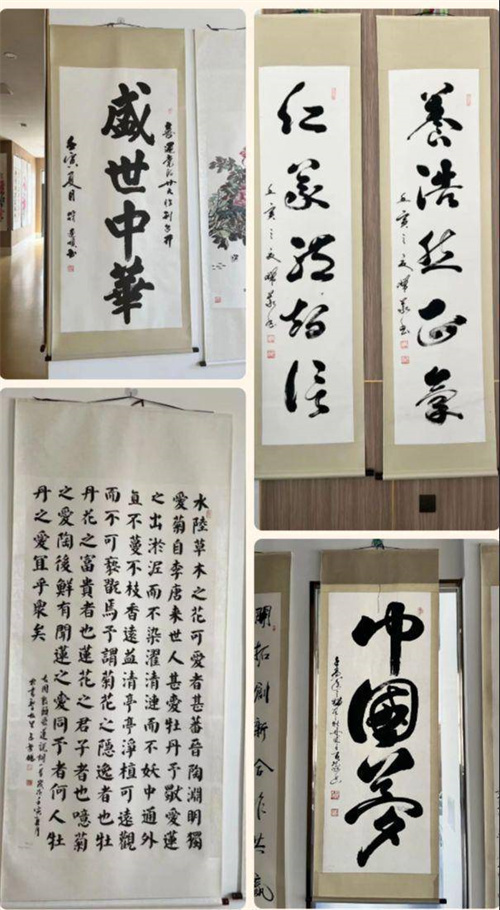 盛世中華
壬寅夏月
養浩然正氣
仁義禮智信
水陸草木之花可愛者甚蕃晉陶淵明獨
愛菊自李唐来世人甚愛牡丹予獨愛蓮
之出淤泥而不染濯清漣而不妖中通外
直不蔓不枝香遠益清亭亭淨植可遠觀
而不可褻翫焉予謂菊花之隱逸者也牡
丹花之富貴者也蓮花之君子者也噫菊
之愛陶後鮮有聞蓮之愛同予者何人牡
丹之愛宜乎衆矣
中國夢
開拓創新合作共赢